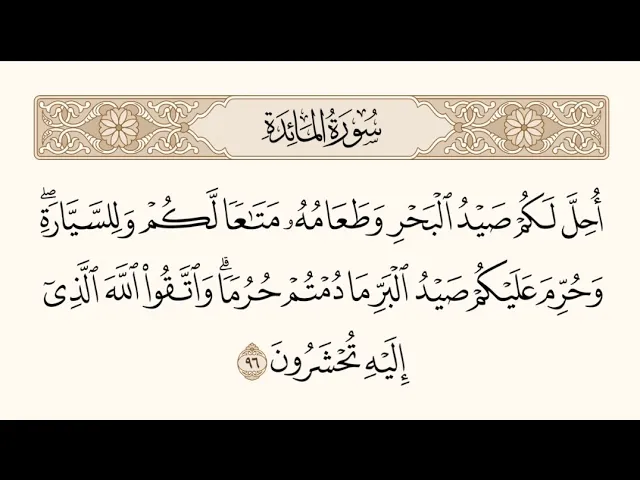 سُورَةُ المَائِدَةِ
أُحِلَّ لَكُمۡ صَيۡدُ ٱلۡبَحۡرِ وَطَعَامُهُۥ مَتَٰعٗا لَّكُمۡ وَلِلسَّيَّارَةِۖ
وَحُرِّمَ عَلَيۡكُمۡ صَيۡدُ ٱلۡبَرِّ مَا دُمۡتُمۡ حُرُمٗاۗ وَٱتَّقُواْ ٱللَّهَ ٱلَّذِيٓ
إِلَيۡهِ تُحۡشَرُونَ ٩٦